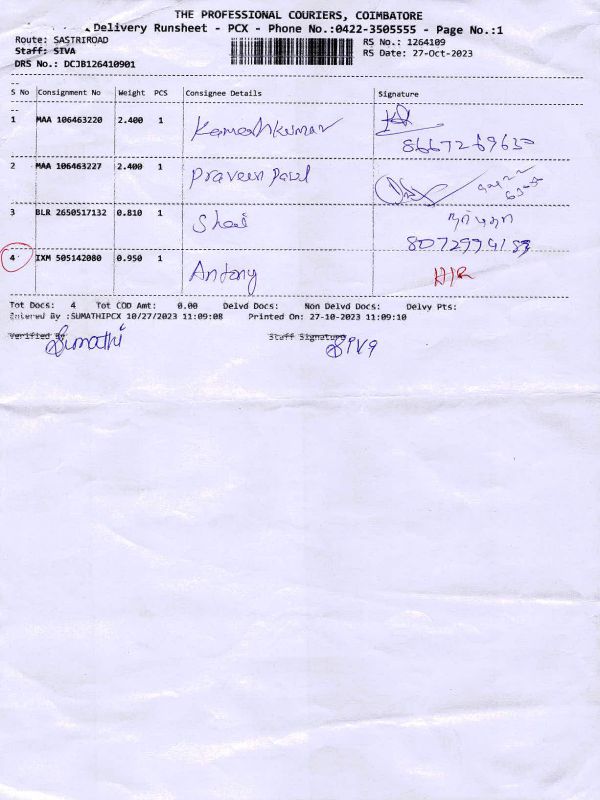 THE PROFESSIONAL COURIERS, COIMBATORE
Delivery Runsheet - PCX - Phone No.:0422-3505555 - Page No.:1
Route: SASTRIROAD
RS No.: 1264109
Staff: SIVA
RS Date: 27-Oct-2023
DRS No.: DCJB126410901
S No Consignment No Weight PCS Consignee Details Signature
1 MAA 106463220 2.400 1 Kameshkumar
8667269630
2 MAA 106463227 2.400 1 Praveen Paul
3 BLR 2650517132 0.810 1
4 IXM 505142080 0.950 1 Antony
Tot Docs: 4 Tot COD Amt: 0.00 Delvd Docs: Non Delvd Docs: Delvy Pts:
Entered By :SUMATHIPCX 10/27/2023 11:09:08 Printed On: 27-10-2023 11:09:10
Verified By Staff Signature
Sumathi